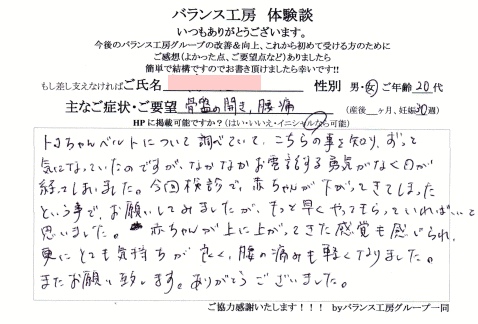 バランス工房 体験談
いつもありがとうございます。
今後のバランス工房グループの改善&向上、これから初めて受ける方のために
ご感想(よかった点、ご要望点など)ありましたら
簡単で結構ですのでお書き頂けましたら幸いです!!
もし差し支えなければご氏名 性別 男・女 ご年齢20代
主なご症状・ご要望 骨盤の開き、腰痛 (産後__ヶ月、妊娠30週)
HPに掲載可能ですか?(はい・いいえ・イニシャルなら可能)
トコちゃんベルトについて調べていて、こちらの事を知り、ずっと
気になっていたのですが、なかなかお電話する勇気がなく日が
経ってしまいました。今回検診で、赤ちゃんが下がってきてしまった
という事で、お願いしてみましたが、もっと早くやってもらっていれば…と
思いました。赤ちゃんが上に上がってきた感覚も感じられ、
更にとても気持ちが良く、腰の痛みも軽くなりました。
またお願い致します。ありがとうございました。
ご協力感謝いたします!!! byバランス工房グループ一同